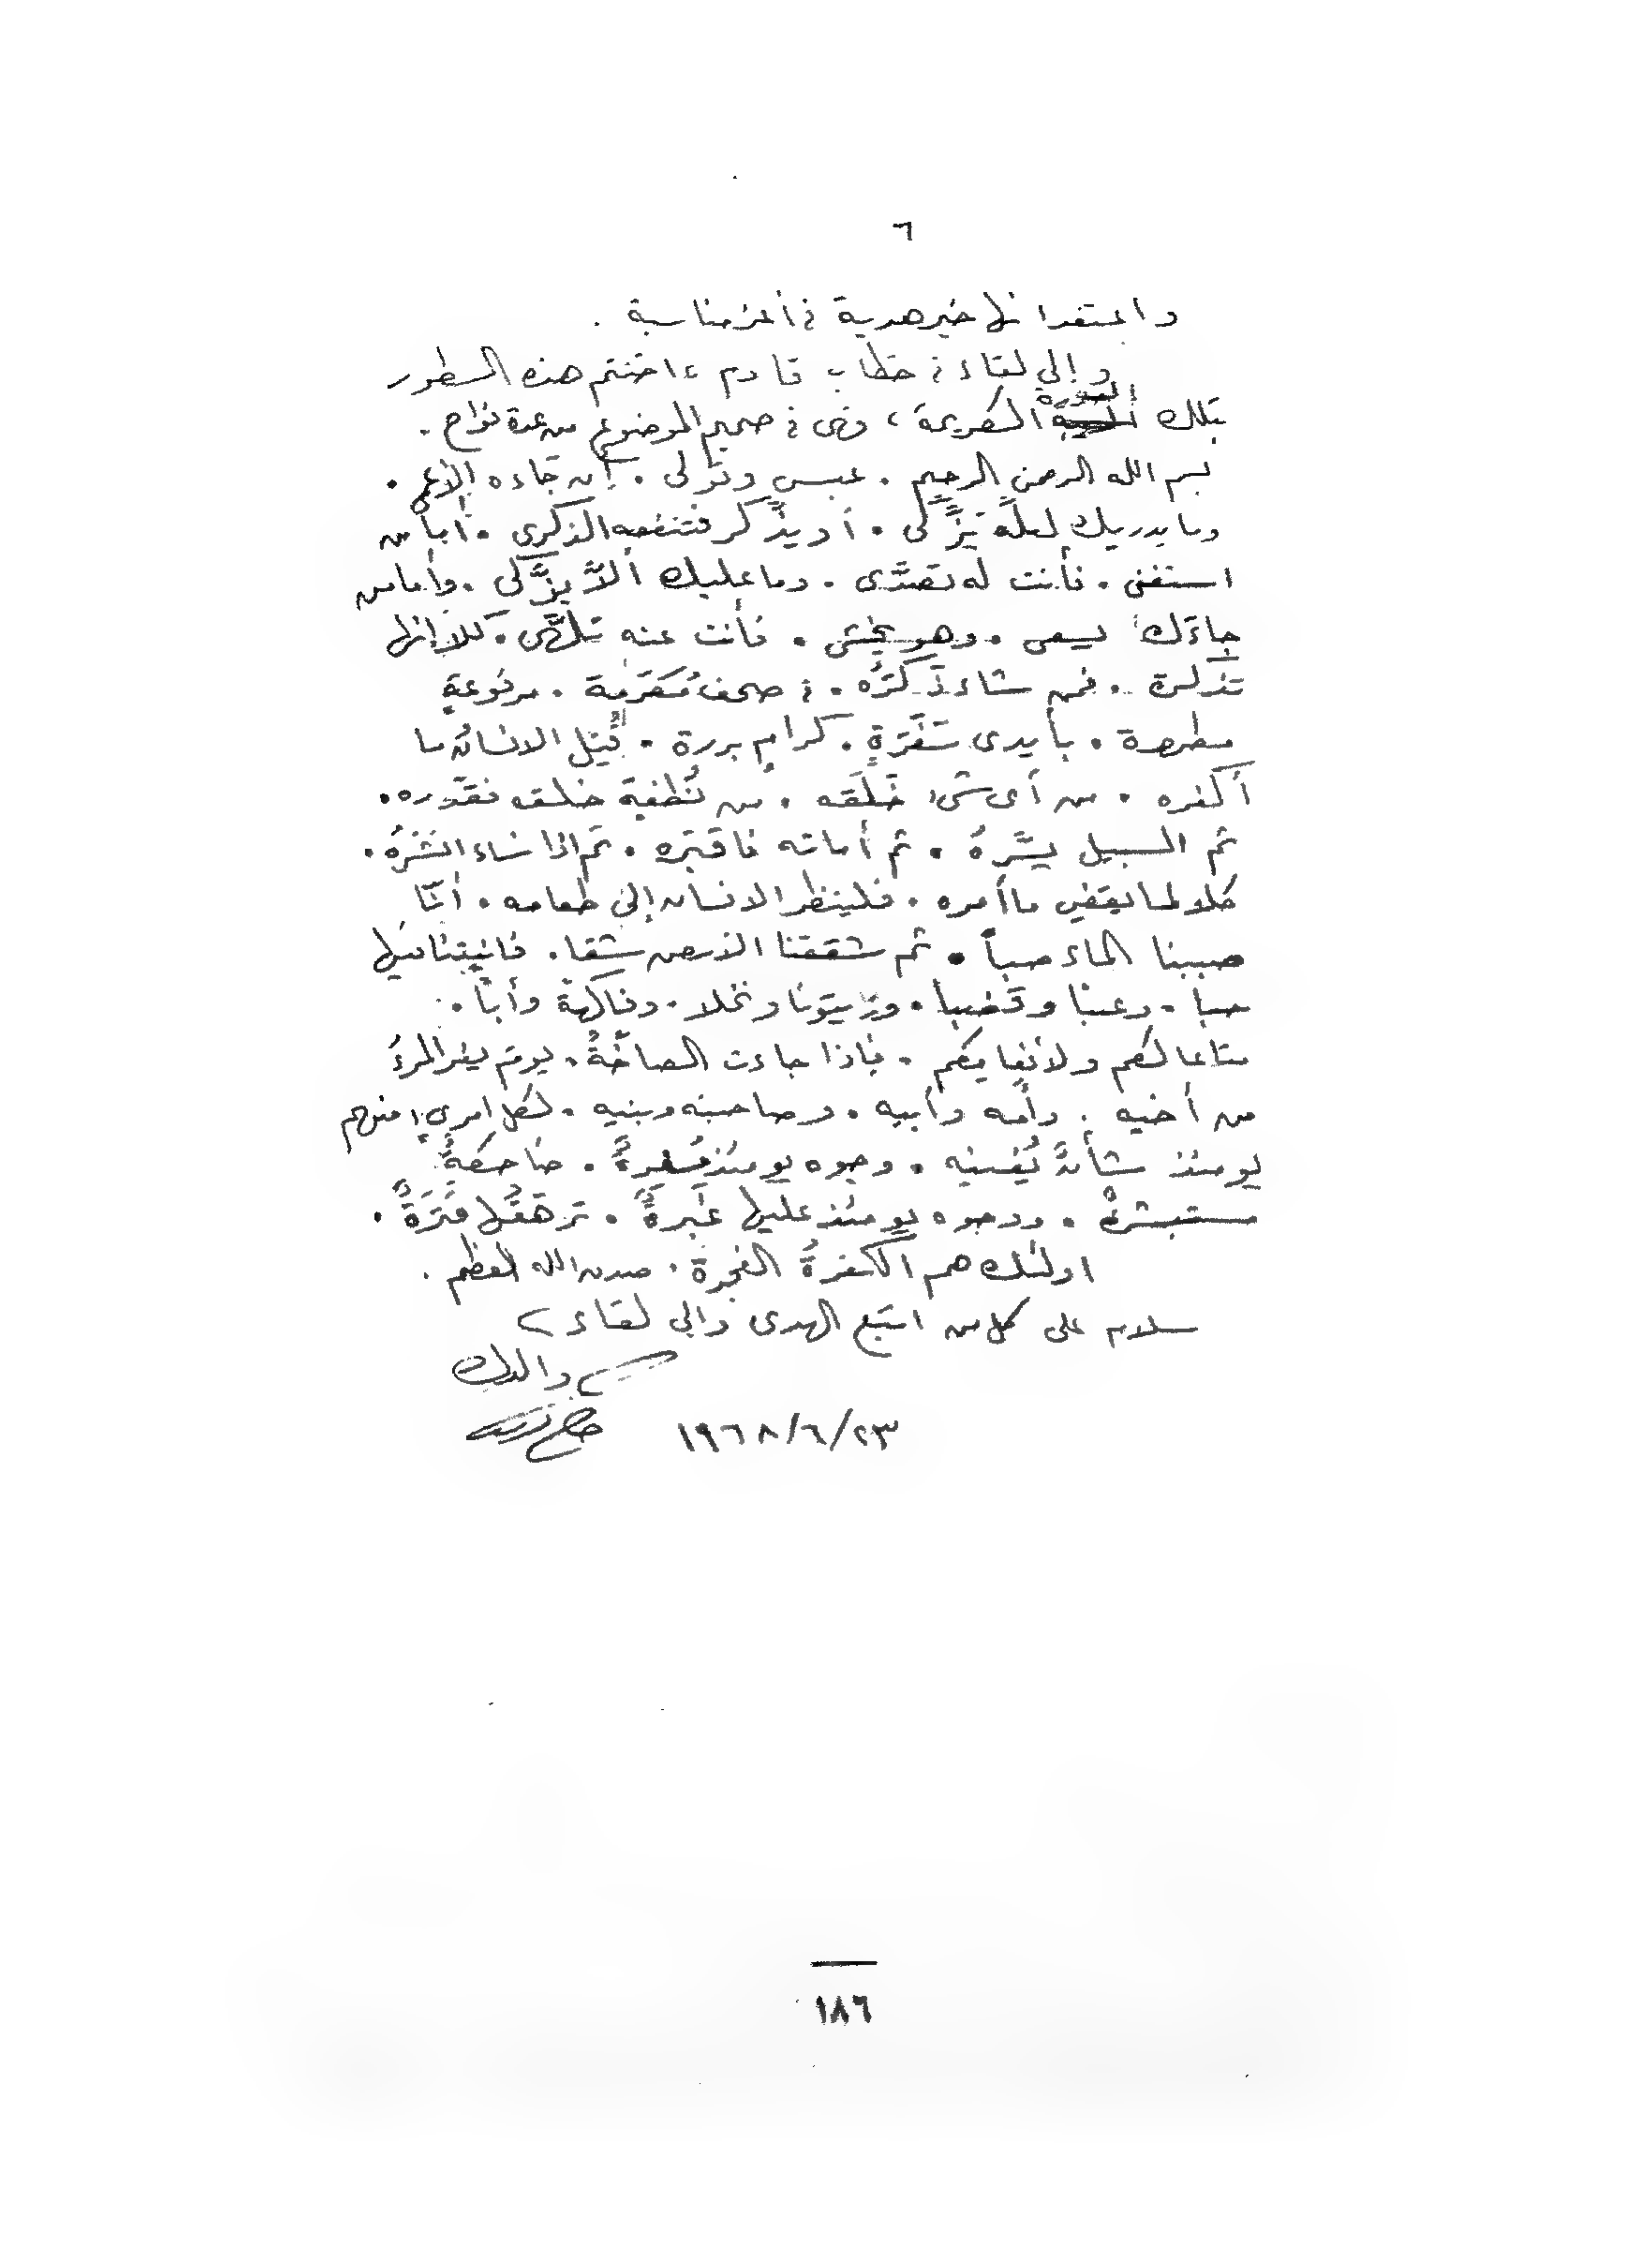 ٦
واعتقد انها خير هدية في أعز مناسبة .
وإلى لقاء في خطاب قادم ، اختتم هذه السطور
بتلك السورة الكريمة ، وهى في صميم الموضوع من عدة نواح .
بسم الله الرحمن الرحيم . عبس وتولى . أن جاءه الأعمى .
وما يدريك لعلَّه يَزَّكَّى . أو يذَّكر فتنفعه الذكرى . أما من
استغنى . فأنت له تصدَّى . وما عليك ألاَّ يزَّكَّى . وأما من
جاءَك يسعى . وهو يخشى . فأنت عنه تلهَّى . كلا إنها
تذكرة . فمن شاء ذَكَرَه . في صحفٍ مُكَرَمة . مرفوعةٍ
مطهرة . بأيدى سَفَرَةٍ . كرامٍ بررة . قُتِل الانسانُ ما
أكفره . من أى شىء خَلَقَه . من نُطفة خلقه فقدره .
ثم السبيل يسَّرهُ . ثم أماته فاقبره . ثم اذا شاء انشرهُ .
كلا لما يقضِ ما أمره . فلينظر الانسان إلى طعامه . أنّا
صببنا الماء صباً . ثم شققنا الارض شقا . فانبتنا فيها
حبا . وعنبا وقضبا . وزيتونا ونخلا . وفاكهة وأبّا .
متاعا لكم ولأنعامكم . فإذا جاءت الصاخَّةُ . يوم يفر المرءُ
من أخيه . وأمه وأبيه . وصاحبته وبنيه . لكل امرىءٍ منهم
يومئذ شأنٌ يُغنيه . وجوه يومئذ مُسفرةٌ . ضاحكةٌ
مستبشرةٌ . ووجوه يومئذ عليها غَبَرةٌ . ترهقُها قَتَرَةٌ .
اولئك هم الكفرةُ الفجرة . صدق الله العظيم .
سلام على كل من اتبع الهدى وإلى لقاء
والدك
٢٣/٦/١٩٦٨
١٨٦